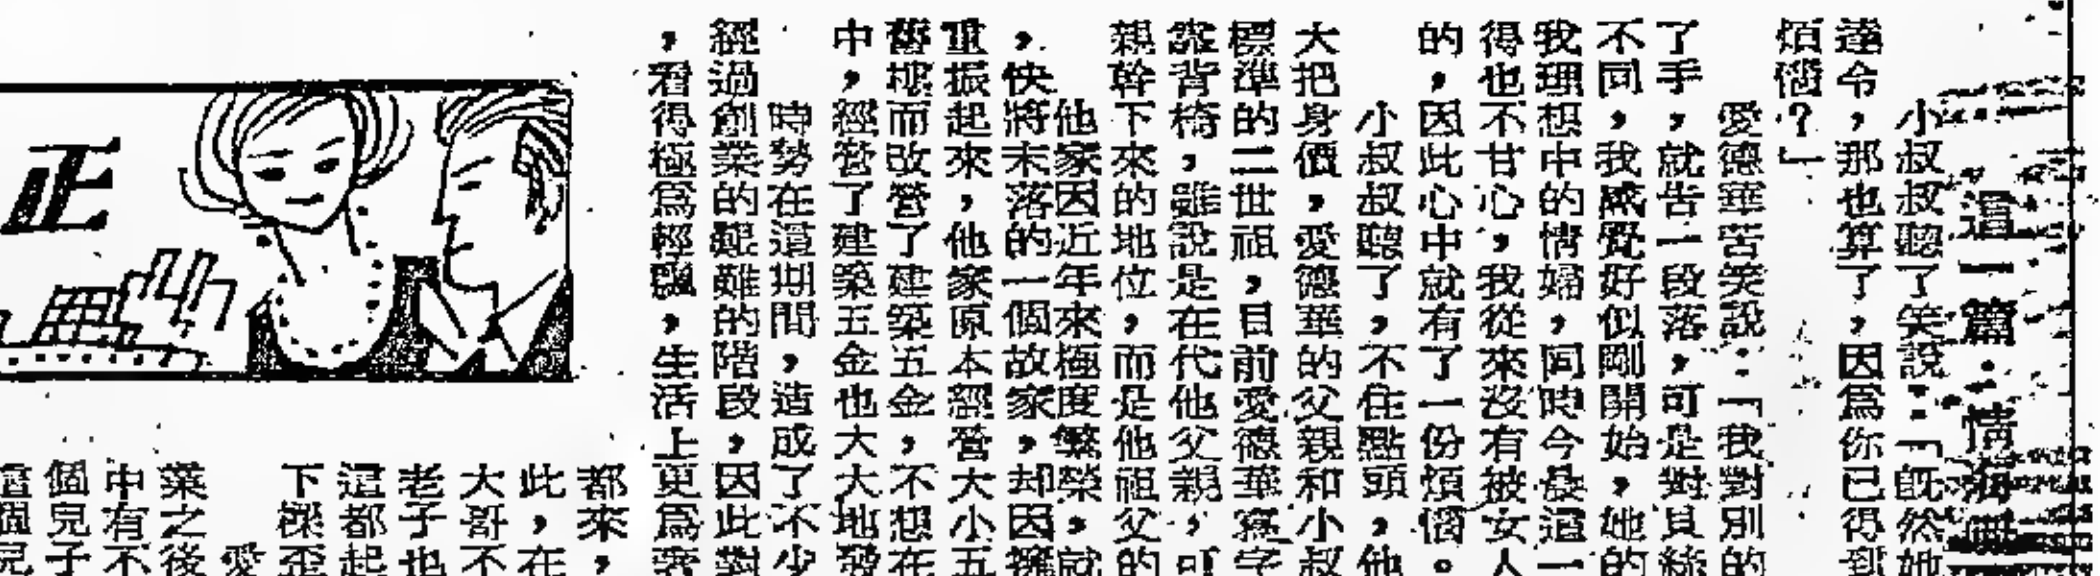 這一篇：情海
小叔叔聽了笑說：「既然她
達令，那也算了，因爲你已得到
煩惱？」
愛德華苦笑說：「我對別的
了手，就告一段落，可是對貝絲
不同，我感覺好似剛開始，她的
我理想中的情婦，同時今是這一
得也不甘心，我從來沒有被女人
的，因此心中就有了一份煩惱。
小叔叔聽了，不住點頭，他
大把身價，愛德華的父親和小叔
標準的二世祖，目前愛德華寫字
靠背椅，雖說是在代他父親，可
親幹下來的地位，而是他祖父的
他家因近年來極度繁榮，就
，快將末落的一個故家，却因擁
重振起來，他家原本經營大小五
舊而改營了建築五金，不想在
中，經營了建築五金也大大地發
時勢在這期間，造成了不少
經過創業的艱難的階段，因此對
，看得極爲輕飄，生活上更爲
正
都來，
此，在
大哥不
老子也
這都起
下樑歪
愛
業之後
中有不
個兒子
這個兒